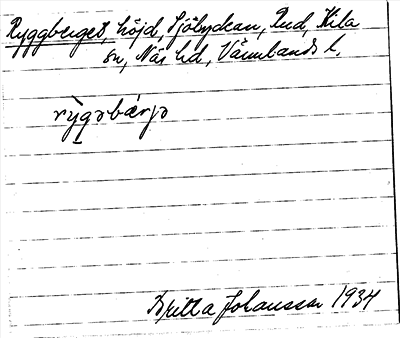 Ryggberget, höjd, Sjölyckan, Rud, Kila
sn, Näs hd, Värmlands l.
rỳgəbærjə
Britta Johansson 1934